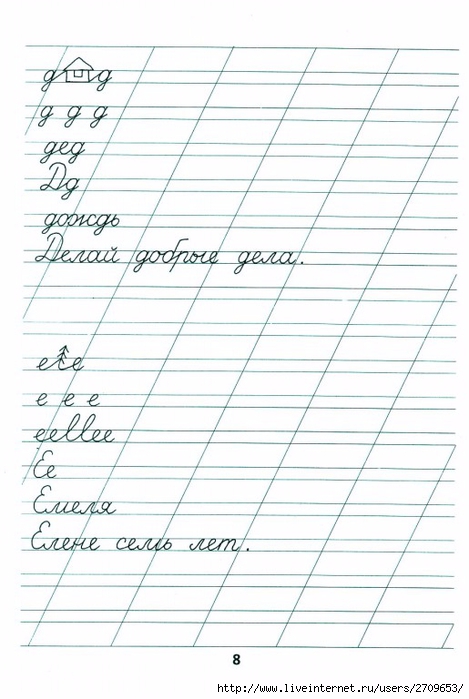 д д
д д д
дед
Дд
дождь
Делай добрые дела.
е е
е е е
ееllее
Ее
Емеля
Елене семь лет.
8
http://www.liveinternet.ru/users/2709653/